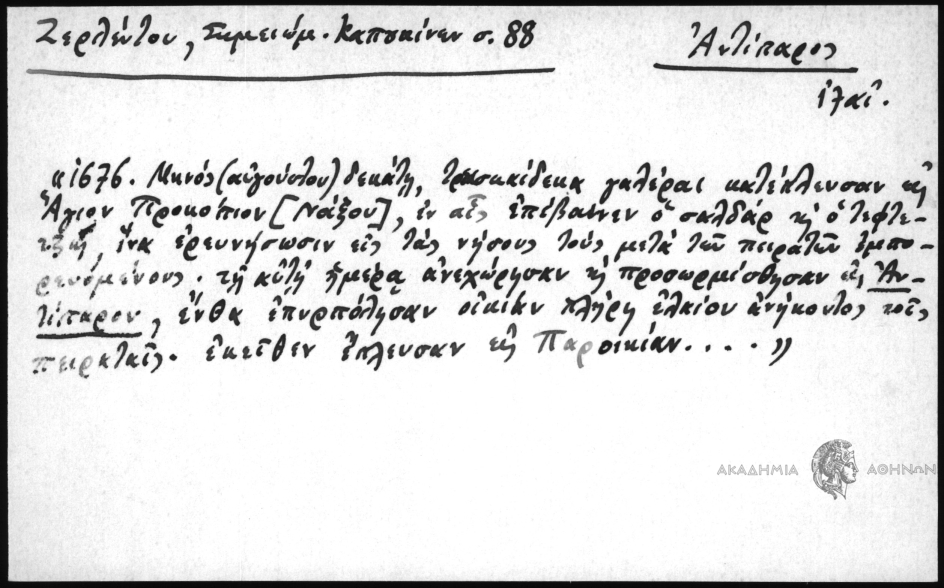 Ζερλέντου, Σημειώμ. Καπουκίνων σ. 88
Ἀντίπαρος
ιζαϊ.
«1676. Μηνὸς (αὐγούστου) δεκάτῃ, τρισκαίδεκα γαλέραι κατέπλευσαν εἰς
Ἅγιον Προκόπιον [Νάξου], ἐν αἷς ἐπέβαινεν ὁ σαλδὰρ κὴ ὁ τεφτε-
τζῆς, ἵνα ἐρευνήσωσιν εἰς τὰς νήσους τοὺς μετὰ τῶν πειρατῶν ἐμπο-
ρευόμενους. τῇ αὐτῇ ἡμέρᾳ ἀνεχώρησαν κὴ προσωρμίσθησαν εἰς Ἀν-
τίπαρον, ἔνθα ἐπυρπόλησαν οἰκίαν πλήρη ἐλαίου ἀνήκοντος τοῖς
πειραταῖς. ἐκεῖθεν ἔπλευσαν εἰς Παροικίαν....»
ΑΚΑΔΗΜΙΑ ΑΘΗΝΩΝ